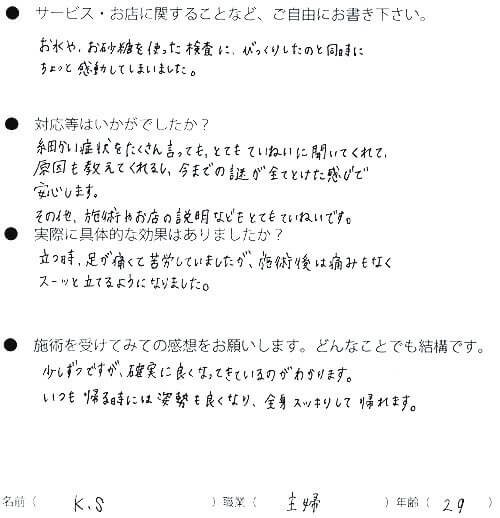 ● サービス・お店に関することなど、ご自由にお書き下さい。
お水や、お砂糖を使った検査に、びっくりしたのと同時に
ちょっと感動してしまいました。
● 対応等はいかがでしたか？
細かい症状をたくさん言っても、とてもていねいに聞いてくれて、
原因も教えてくれるし、今までの謎が全てとけた感じで
安心します。
その他、施術やお店の説明などもとてもていねいです。
● 実際に具体的な効果はありましたか？
立つ時、足が痛くて苦労していましたが、施術後は痛みもなく
スーッと立てるようになりました。
● 施術を受けてみての感想をお願いします。どんなことでも結構です。
少しずつですが、確実に良くなってきているのがわかります。
いつも帰る時には姿勢も良くなり、全身スッキリして帰れます。
名前（ K.S ）職業（ 主婦 ）年齢（ 29 ）